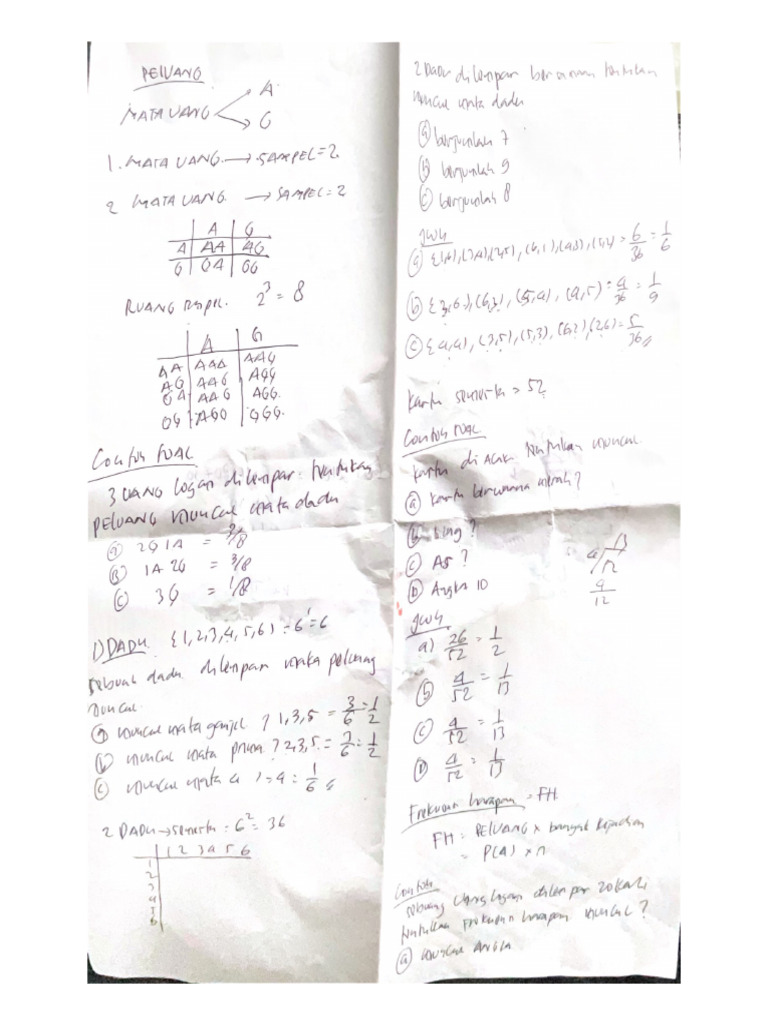 PELUANG
MATA UANG
A
G
1. MATA UANG → SAMPEL = 2
2 MATA UANG → SAMPEL = 2
A G
A AA AG
G GA GG
RUANG 2³ = 8
A G
AA AAA AAG
AG AAG AGG
GA AAG AGG
GG AGG GGG.
Contoh
3 UANG Logam dilempar. tentukan
PELUANG muncul mata dadu
(a) 2G 1A = 3/8
(B) 1A 2G = 3/8
(C) 3G = 1/8
1) DADU. {1,2,3,4,5,6} = 6¹ = 6
sebuah dadu dilempar maka peluang
muncul
(a) muncul mata ganjil ? 1,3,5 = 3/6 = 1/2
(b) muncul mata prima ? 2,3,5 = 3/6 = 1/2
(c) muncul mata 4 = 4 = 1/6
2 DADU → semesta = 6² = 36
1 2 3 4 5 6
1
2
3
4
5
6
2 Dadu dilempar tentukan
muncul mata dadu
(a) berjumlah 7
(b) berjumlah 9
(c) berjumlah 8
jwb
(a) = 6/36 = 1/6
(b) {3,6), (6,3), (5,4), (4,5) = 4/36 = 1/9
(c) {4,4), (3,5), (5,3), (6,2), (2,6) = 5/36
Kartu semesta = 52
Contoh
Kartu di Acak tentukan muncul
(a) Kartu berwarna merah?
(b) King?
(c) AS?
(D) Angka 10
4
13
52
4
12
jwb
a) 26/52 = 1/2
(b) 4/52 = 1/13
(c) 4/52 = 1/13
(D) 4/52 = 1/13
Frekuensi harapan = FH
FH = PELUANG × banyak Kejadian
= P(A) × n
Contoh
Uang logam dilempar 20 kali
tentukan Frekuensi harapan muncul?
(a) muncul Angka